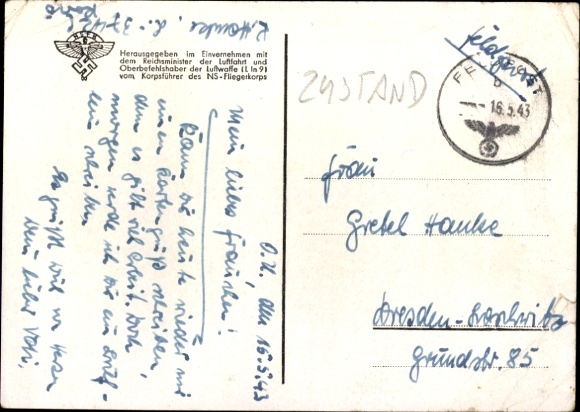 NSFK
Herausgegeben im Einvernehmen mit
dem Reichsminister der Luftfahrt und
Oberbefehlshaber der Luftwaffe (L In 9)
vom Korpsführer des NS-Fliegerkorps
Feldpost
ZUSTAND
FELDPOST
b
16.5.43
Frau
Gretel Hanke
Dresden-Laschwitz
Grundstr. 85
O.U., den 16.5.43
Mein liebes Frauchen!
Kann dir heute wieder nur
einen Kartengruß schreiben,
denn es gibt viel Arbeit. Doch
morgen werde ich dir ein Brief-
lein schreiben.
Es grüßt
Dein lieber Vati.